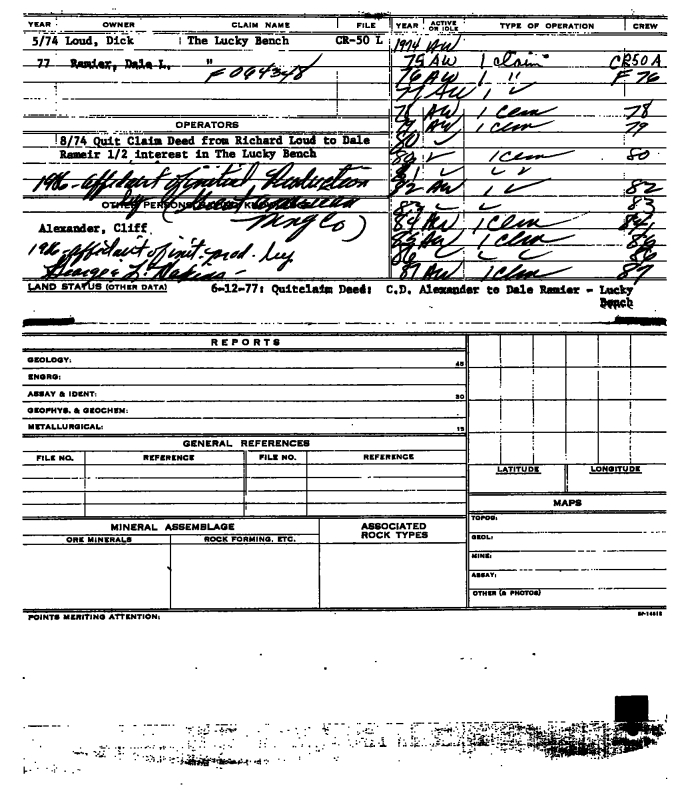 YEAR OWNER CLAIM NAME FILE
5/74 Loud, Dick The Lucky Bench CR-50 L
77 Ramier, Dale L. "
F 064348
OPERATORS
8/74 Quit Claim Deed from Richard Loud to Dale
Rameir 1/2 interest in The Lucky Bench
1986 - affidavit of initial Production
by
OTHER PERSONS
Mng Co)
Alexander, Cliff
1986 affidavit of init. prod. by
George L.
YEAR ACTIVE OR IDLE TYPE OF OPERATION CREW
1974 AW
75 AW 1 claim CR50A
76 AW 1 " F 76
77 AW 1 ✓
78 AW 1 clem 78
79 AW 1 clem 79
80 ✓
80 ✓ 1 clem 80
81 ✓ ✓ ✓
82 AW 1 ✓ 82
83 ✓ ✓ 83
84 AW 1 clem 84
85 AW 1 clem
86 ✓ ✓ ✓ 86
87 AW 1 clem 87
LAND STATUS (OTHER DATA) 6-12-77: Quitclaim Deed: C.D. Alexander to Dale Ramier - Lucky
Bench
REPORTS
GEOLOGY: 45
ENGRG:
ASSAY & IDENT: 30
GEOPHYS. & GEOCHEM:
METALLURGICAL: 15
GENERAL REFERENCES
FILE NO. REFERENCE FILE NO. REFERENCE
LATITUDE LONGITUDE
MAPS
TOPOG:
GEOL:
MINE:
ASSAY:
OTHER (& PHOTOS)
MINERAL ASSEMBLAGE
ORE MINERALS ROCK FORMING, ETC.
ASSOCIATED
ROCK TYPES
POINTS MERITING ATTENTION: